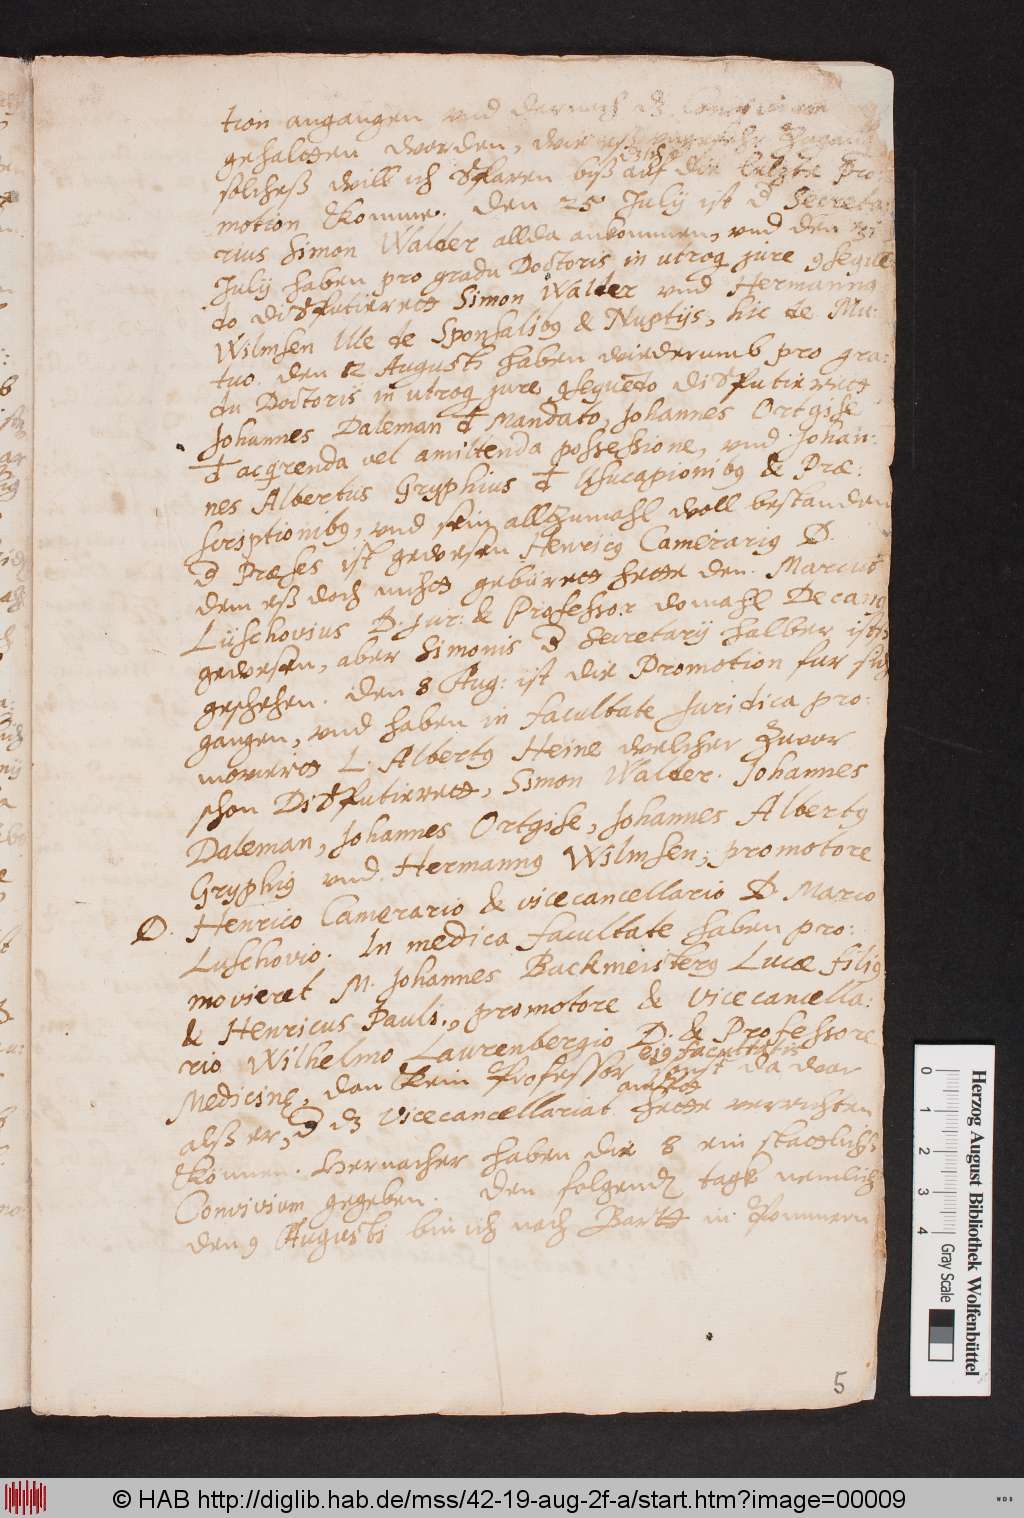 tion angangen vnd dernach dz Convivium
gehalten worden, wie
solcheß will ich sparen biß auf die letzte Pro¬
motion Ekomme. den 25 Julij ist d Secreta¬
rius Simon Walder allda ankommen, vnd den 31
Julij haben pro gradu Doctoris in utroq jure 9seque¬
do disputierett Simon Walder vnd Hermannq
Wilmsen Ille de Sponsalibq & Nuptijs, hic de Mu¬
tuo. den 2 Augusti haben wiederumb pro gra¬
du Doctoris in utroq jure 9sequedo disputierett
Johannes Daleman de Mandato, Johannes Ortgise
de acqrenda vel amittenda possessione, vnd Johan:
nes Albertus Gryphius de Vsucapionibq & Præ:
scriptionibq, vnd sein allzumahl woll bestanden
d Præses ist gewesen Henricq Camerariq D.
dem eß doch nicht gebürett hette den Marcus
Lüschovius D. jur: & Professor domahl Decanq
gewesen, aber Simonis d Secretarij halber ists
geschehen. den 8 Aug: ist die Promotion fur sich
gangen, vnd haben in facultate Juridica pro:
movirett L. Albertq Heine welcher zuvor
schon Disputierett, Simon Walder. Johannes
Daleman, Johannes Ortgise, Johannes Albertq
Gryphiq vnd Hermannq Wilmsen, promotore
D. Henrico Camerario & vicecancellario D. Marco
Luschovio. In medica facultate haben pro:
movieret M. Johannes Backmeisterq Lucæ filiq
& Henricus Pauli, promotore & Vicecancella:
rio Wilhelmo Laurenbergio D. & Professore
Medicinę, dan Kein Professor eiq facultatis sonst da war
alß er, d dz Vicecancellariat hette verrichten
Können. Hernacher haben die 8 ein stattlichs
Convivium gegeben. den folgendz tagk nemlich
den 9 Augusti bin ich nach Bartt in Pommern
5
Herzog August Bibliothek Wolfenbüttel
0 1 2 3 4 Gray Scale
© HAB http://diglib.hab.de/mss/42-19-aug-2f-a/start.htm?image=00009